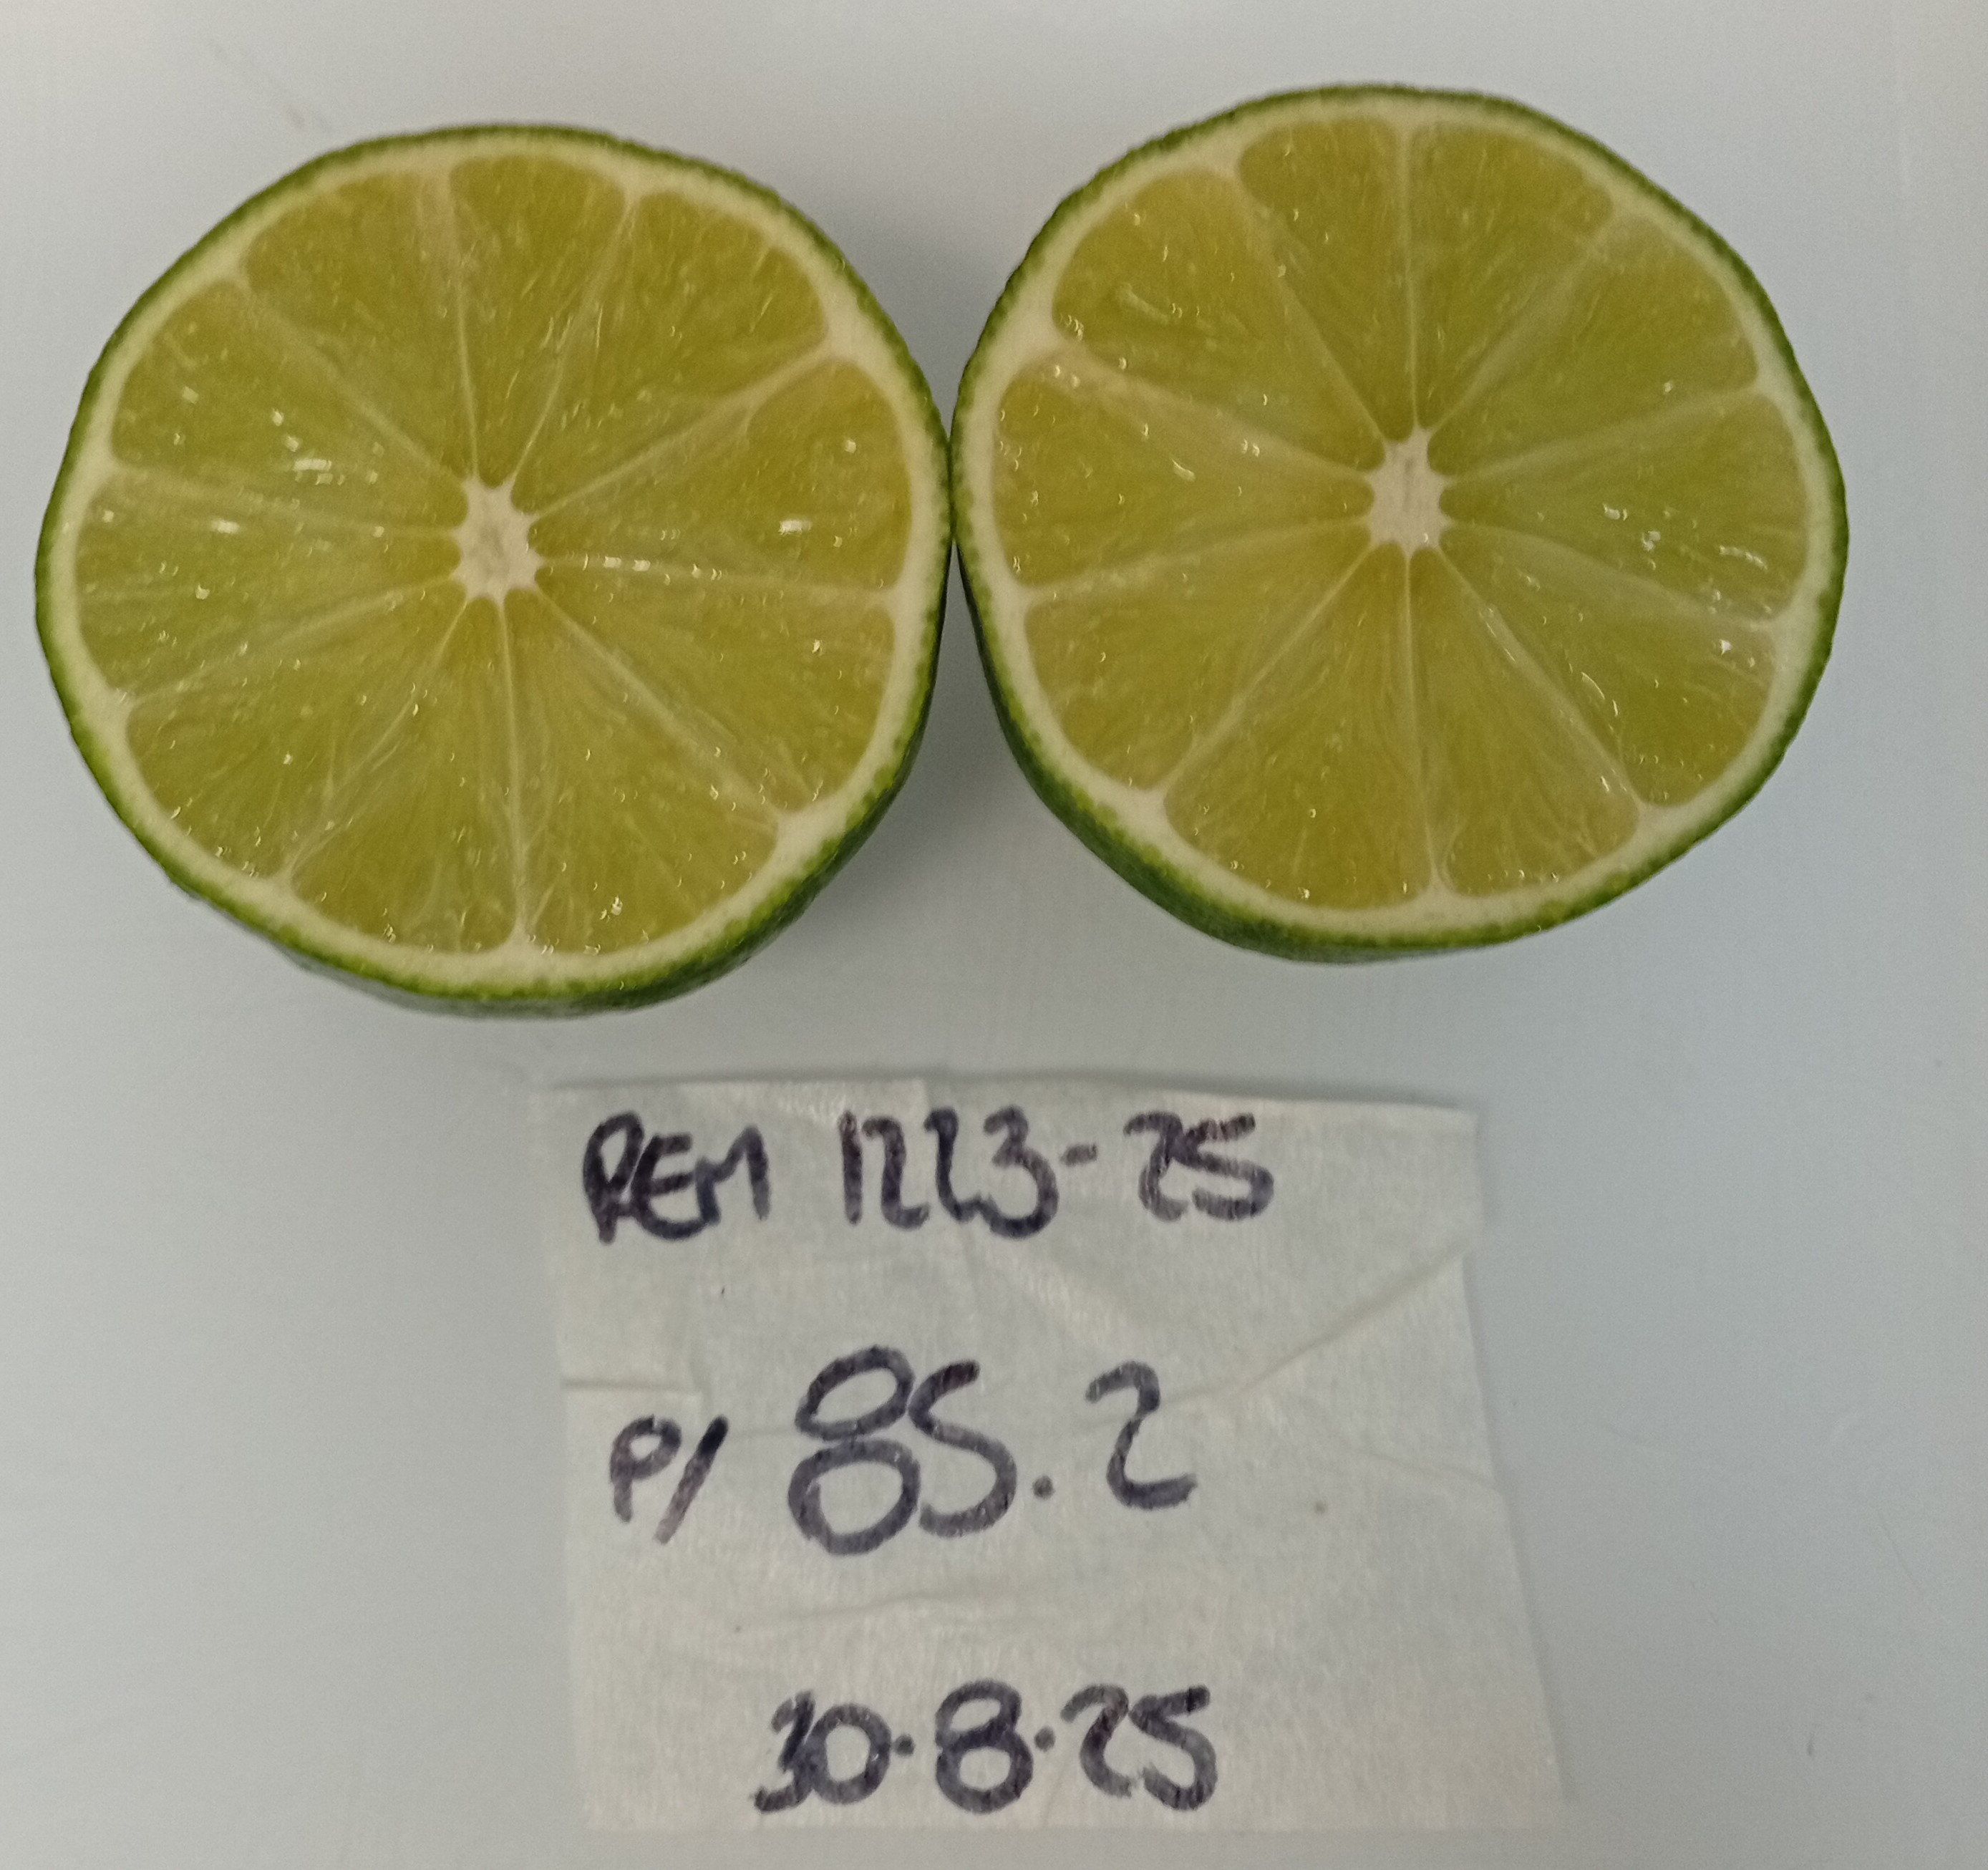 REM 1223-25
P/ 85.2
30.8.25